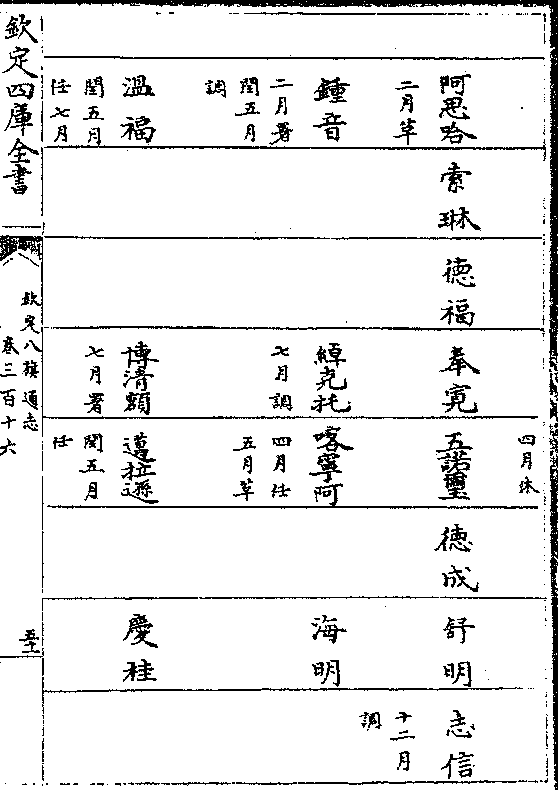 阿思哈
二月革
鍾音
二月署
閏五月
調
溫福
閏五月
任七月
索琳
德福
奉寬
綽克托
七月調
博清額
七月署
四月休
五諾璽
喀寧阿
四月任
五月革
邁拉遜
閏五月
任
德成
舒明
海明
慶桂
志信
十二月
調
欽定四庫全書
欽定八旗通志
卷三百十六